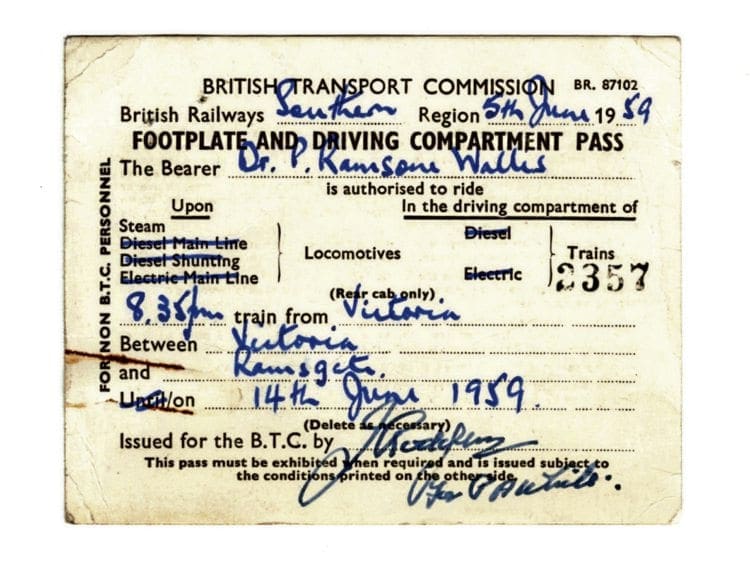 BRITISH TRANSPORT COMMISSION BR. 87102
British Railways Southern Region 5th June 1959
FOOTPLATE AND DRIVING COMPARTMENT PASS
The Bearer Dr. P. Ramsome Wallis
is authorised to ride
Upon In the driving compartment of
Steam Diesel
Diesel Main Line
Diesel Shunting Locomotives Trains
Electric Main Line Electric 2357
(Rear cab only)
8.35pm train from Victoria
Between Victoria
and Ramsgate.
Until/on 14th June 1959.
(Delete as necessary)
Issued for the B.T.C. by
This pass must be exhibited when required and is issued subject to
the conditions printed on the other side.
FOR NON B.T.C. PERSONNEL